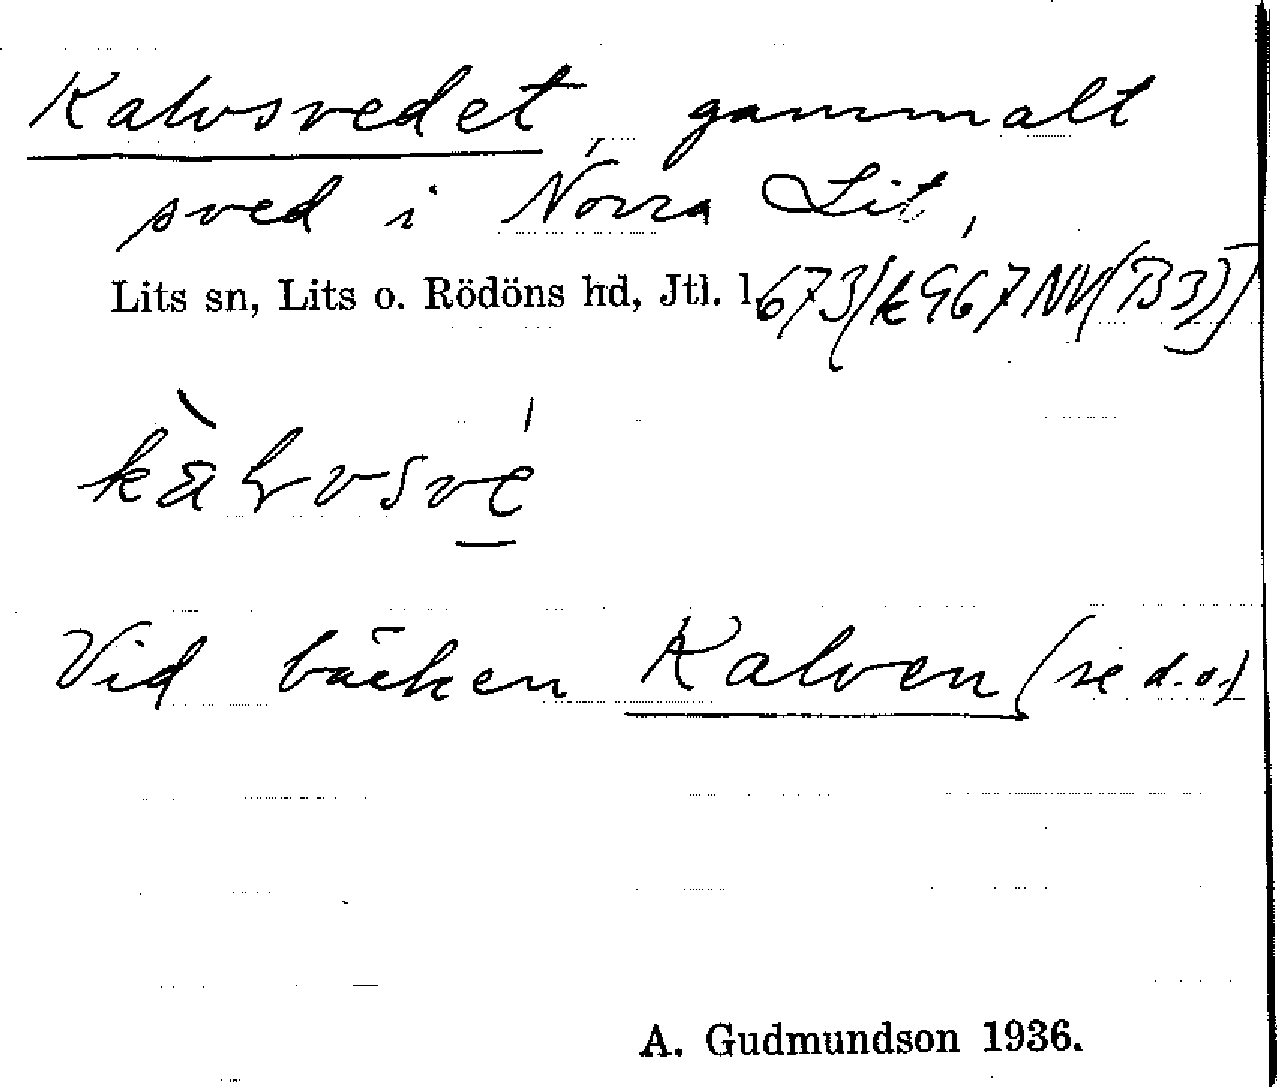 Kalvsvedet, gammalt
sved i Norra Lit,
Lits sn, Lits o. Rödöns hd, Jtl. l.
Vid bäcken Kalven (se d.o.)
A. Gudmundson 1936.